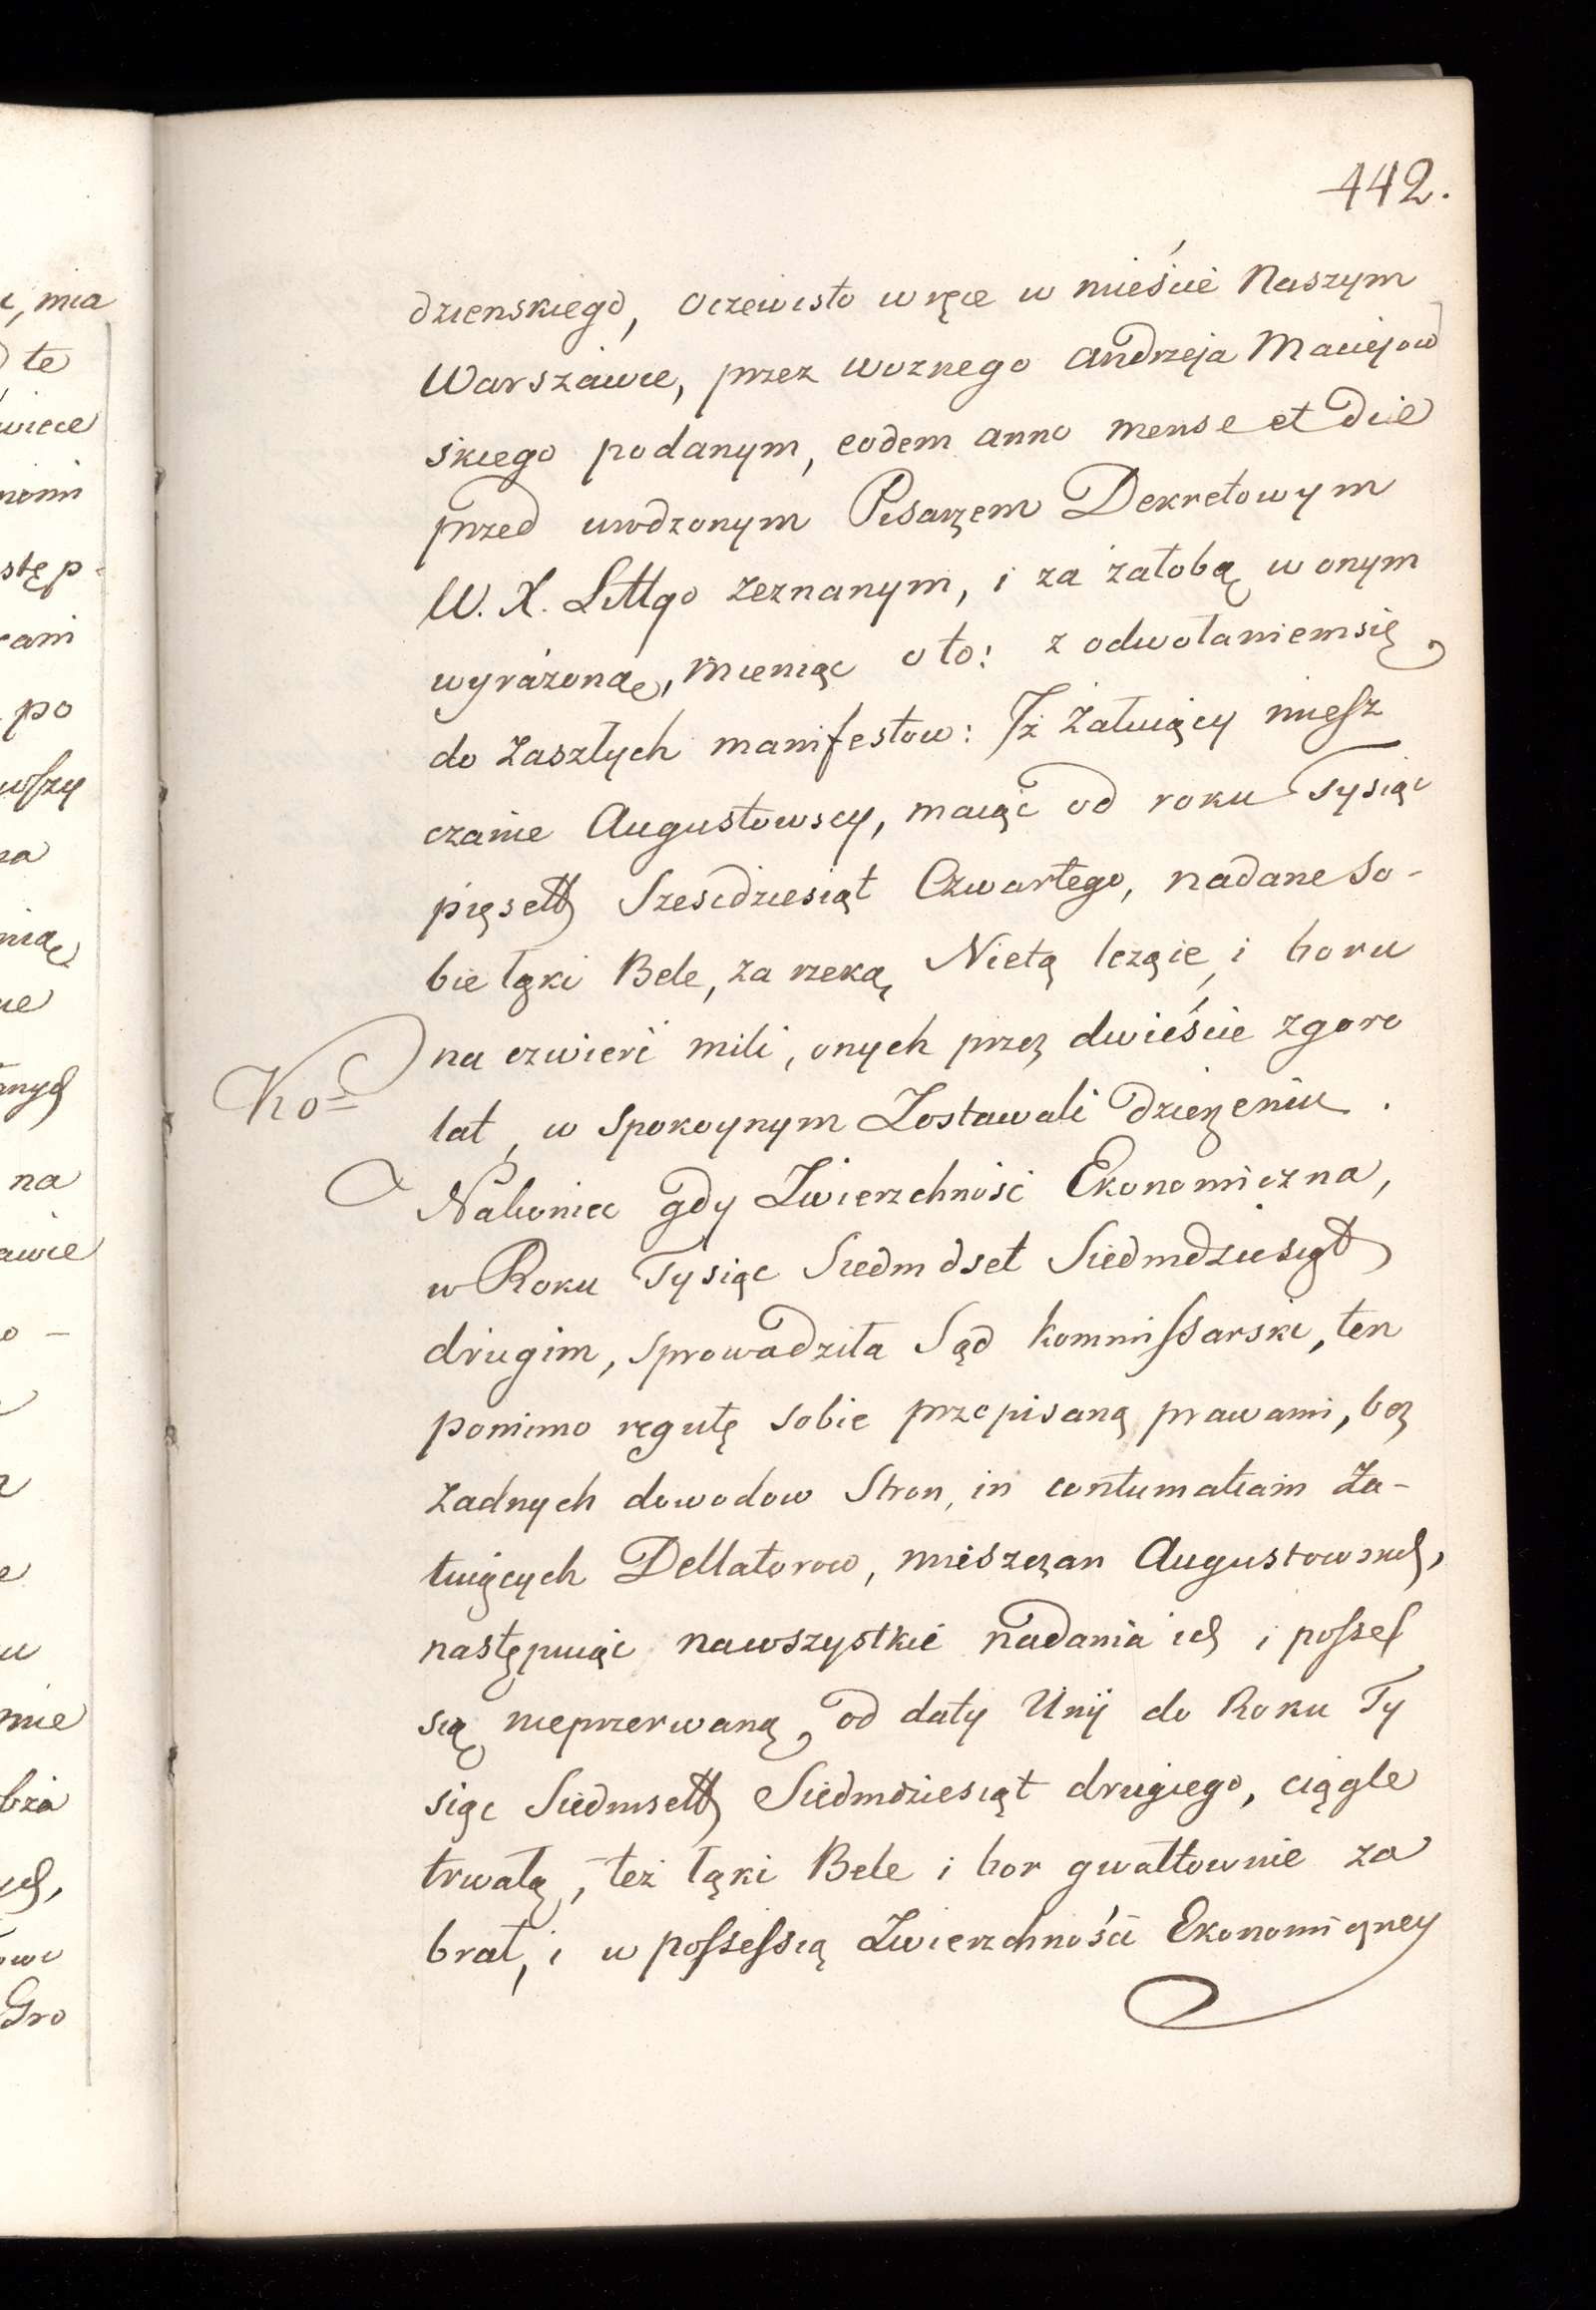 442.
dzienskiego, oczewisto w ręce w mieście Naszym
Warszawie, przez woznego Andrzeja Maciejow
skiego podanym, eodem anno mense et die
przed urodzonym Pisarzem Dekretowym
W. X. Littgo zeznanym, i za żałobą w onym
wyrażoną, mieniąc oto: z odwołaniem się
do zaszłych manifestow: Iż Żałuiący miesz
czanie Augustowscy, maiąc od roku Tysiąc
pięsett Szescdziesiąt Czwartego, nadane so-
bie łąki Bele, za rzeką Nietą leżące, i boru
na czwierć mili, onych przez dwieście zgoro
lat, w spokoynym Zostawali dzierzeniu.
Nakoniec gdy Zwierzchność Ekonomiczna,
w Roku Tysiąc Siedmdset Siedmdziesiątt
drugim, sprowadziła Sąd kommissarski, ten
pomimo regułę sobie przepisaną prawami, bez
żadnych dowodow Stron, in contumatiam Ża-
łuiących Dellatorow, mieszczan Augustowskich,
następuiąc nawszystkie nadania ich i posses
sią nieprzerwaną, od daty Unij do Roku Ty
siąc Siedmsett Siedmdziesiąt drugiego, ciągle
trwałą, też łąki Bele i bor gwałtownie za
brał, i w possessią Zwierzchności Ekonomiczney
Ko=
i, mia
te
po
na
Gro